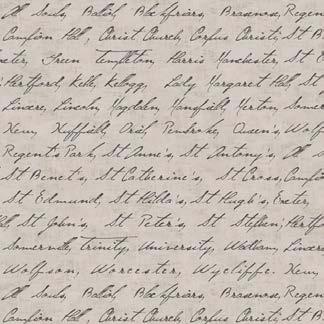 All Souls, Balliol, Blackfriars, Brasenose, Regent
Campion Hall, Christ Church, Corpus Christi, St B
xeter, Green Templeton, Harris Manchester, St E
Hertford, Keble, Kellogg, Lady Margaret Hall, St
Linacre, Lincoln, Magdalen, Mansfield, Merton, Somer
New, Nuffield, Oriel, Pembroke, Queen's, Wolf
Regent's Park, St Anne's, St Antony's, All S
St Benet's, St Catherine's, St Cross, Campion
St Edmund, St Hilda's, St Hugh's, Exeter,
St John's, St Peter's, St Stephen, Hertford
Somerville, Trinity, University, Wadham, Linacre
Wolfson, Worcester, Wycliffe. New,
All Souls, Balliol, Blackfriars, Brasenose, Regent
Campion Hall, Christ Church, Corpus Christi, St B